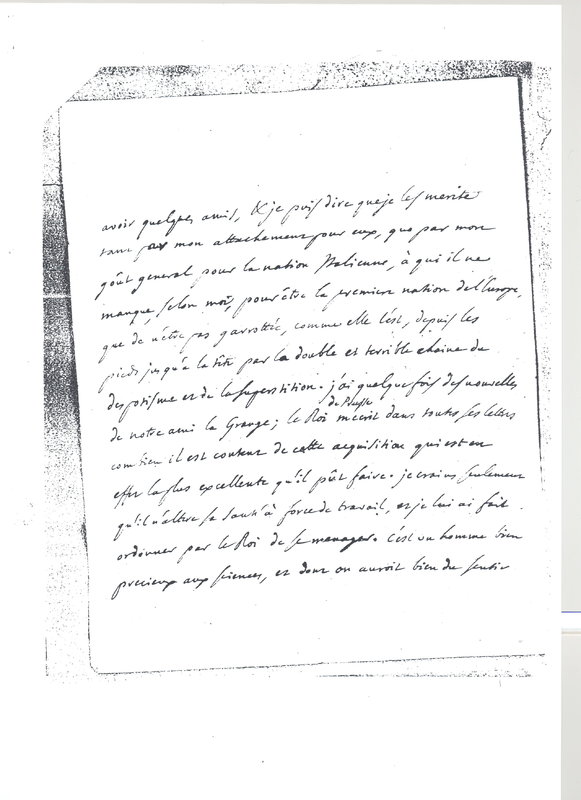 avoir quelques amis, & je puis dire que je les merite
tant par mon attachement pour eux, que par mon
goût general pour la nation Italienne, à qui il ne
manque, selon moi, pour être la premiere nation de l'Europe,
que de n'être pas garrottée, comme elle l'est, depuis les
pieds jusqu'à la tête par la double et terrible chaine du
despotisme et de la superstition. j'ai quelque fois des nouvelles
de Prusse
de notre ami la Grange; le Roi m'ecrit dans toutes ses lettres
combien il est content de cette acquisition qui est en
effet la plus excellente qu'il pût faire. je crains seulement
qu'il n'altere sa santé à force de travail, et je lui ai fait
ordonner par le Roi de se menager. C'est un homme bien
precieux aux sciences, et dont on auroit bien du